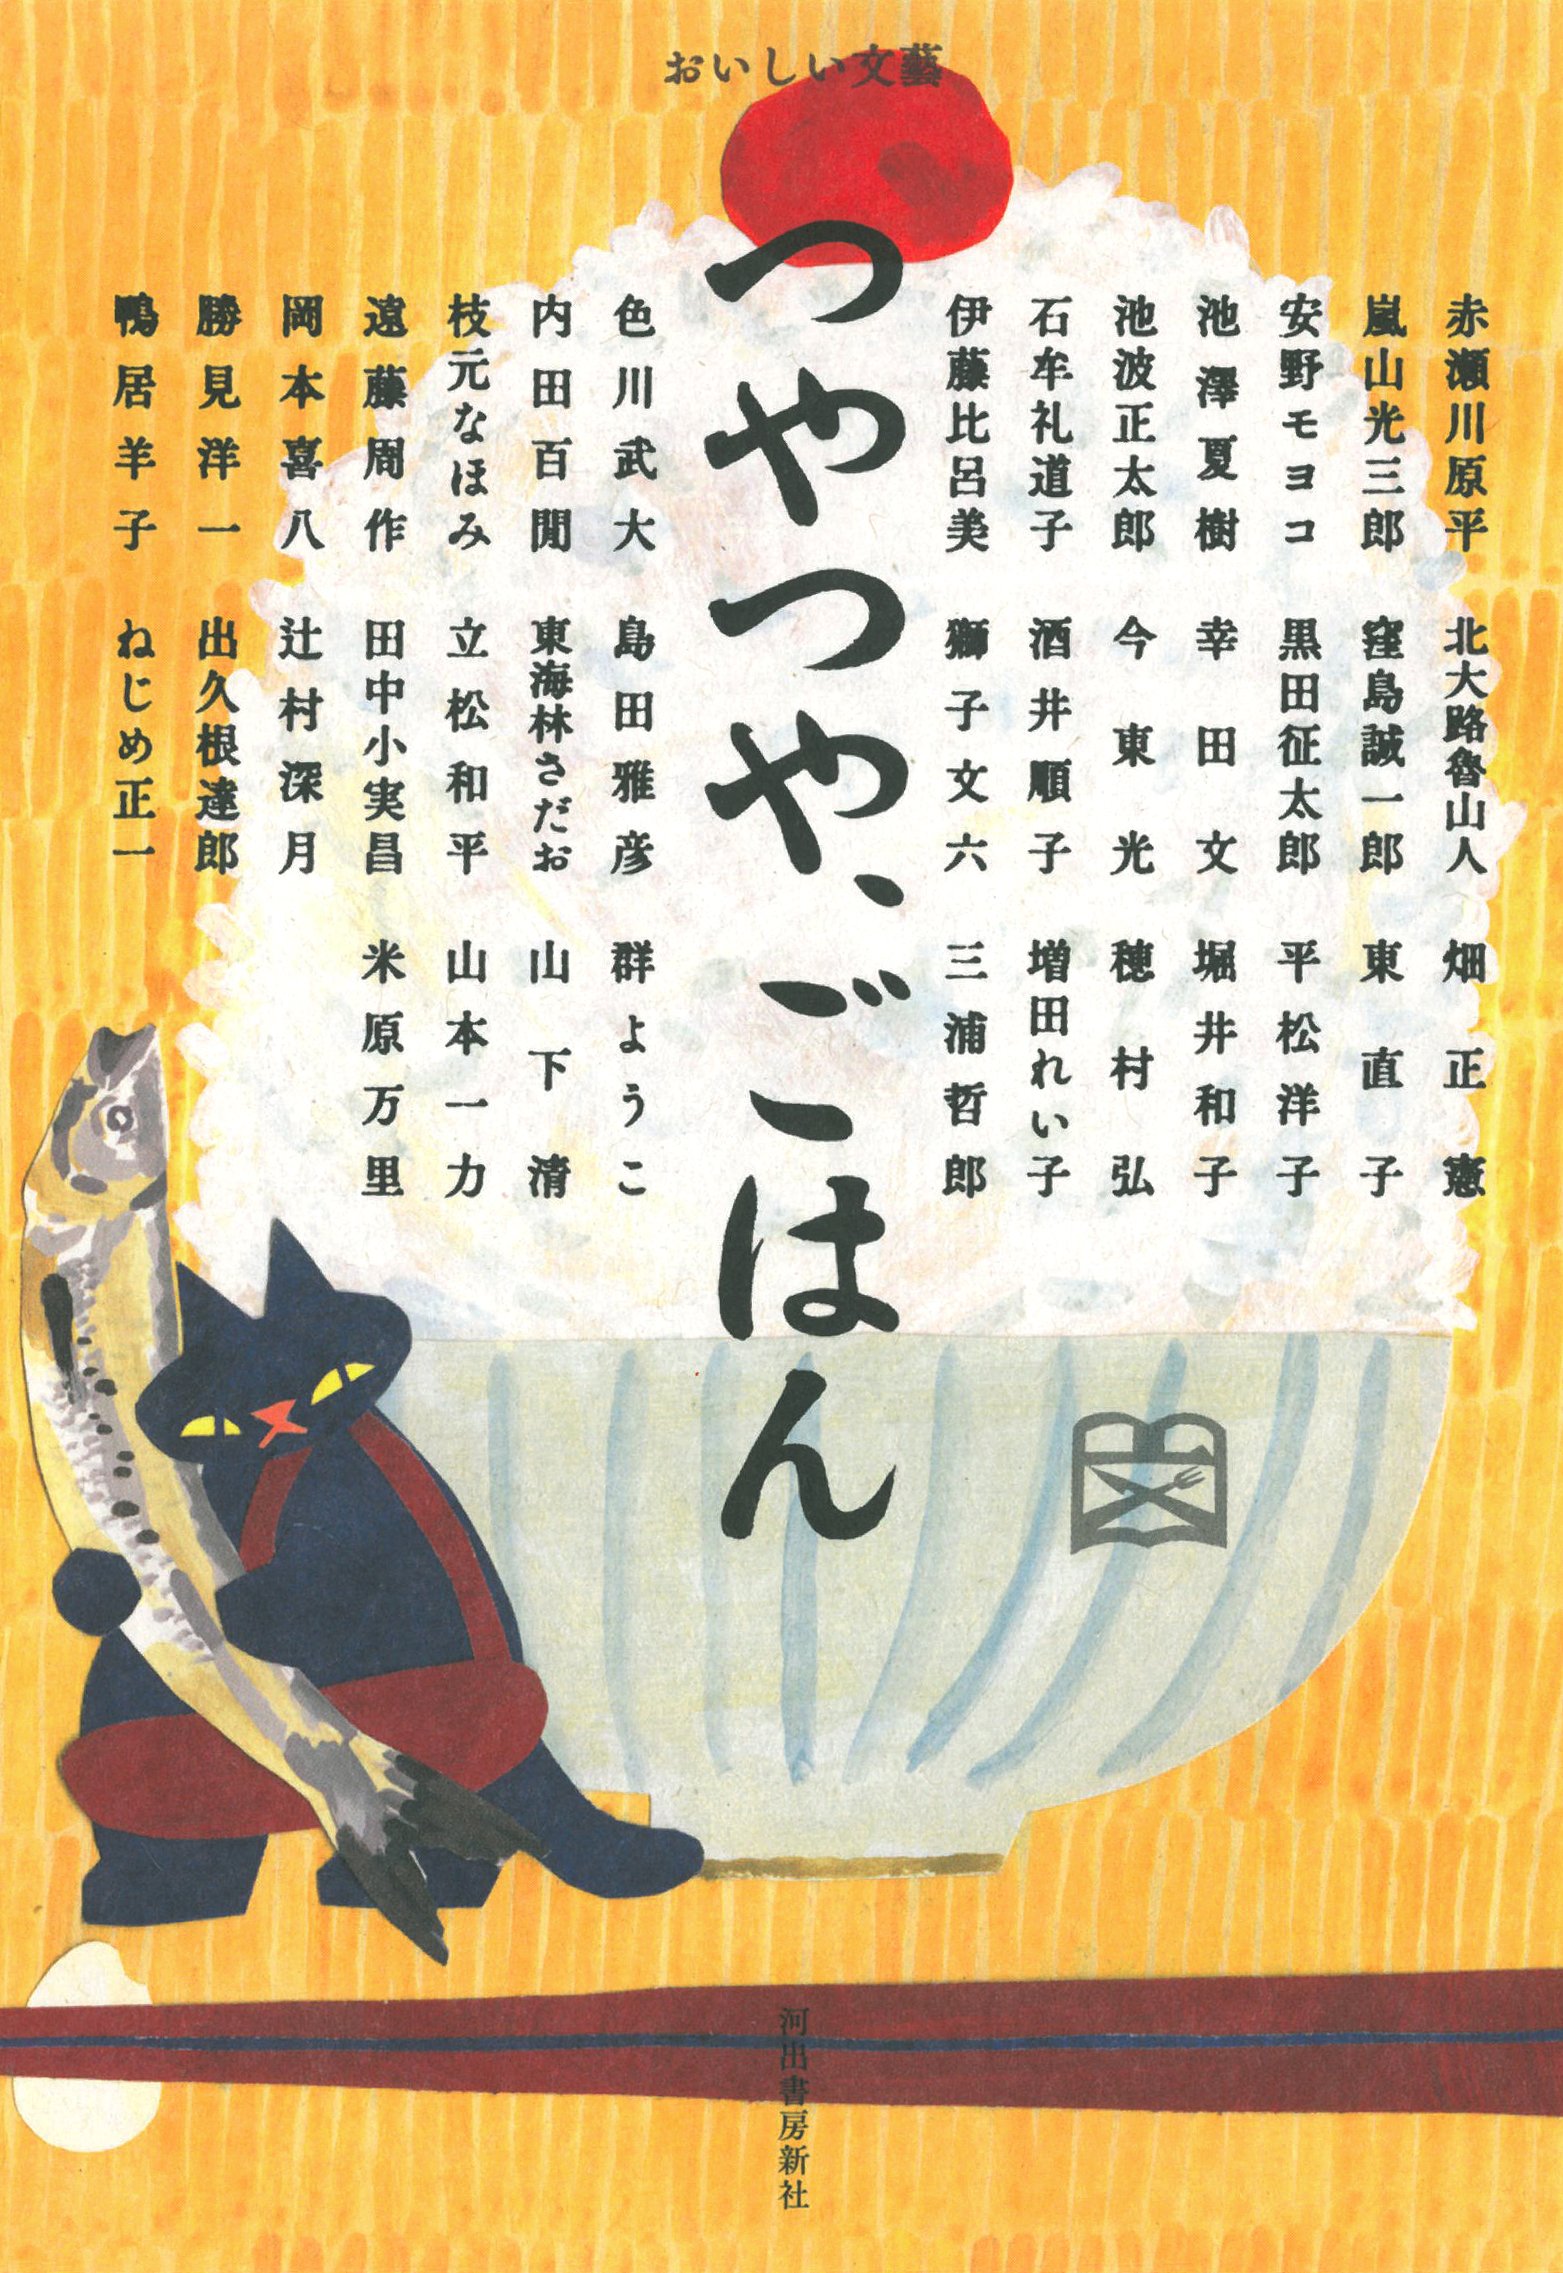 おいしい文藝
つやつや、ごはん
赤瀬川原平
嵐山光三郎
安野モヨコ
池澤夏樹
池波正太郎
石牟礼道子
伊藤比呂美
色川武大
内田百閒
枝元なほみ
遠藤周作
岡本喜八
勝見洋一
鴨居羊子
北大路魯山人
窪島誠一郎
黒田征太郎
幸田文
今東光
酒井順子
獅子文六
島田雅彦
東海林さだお
立松和平
田中小実昌
辻村深月
出久根達郎
ねじめ正一
畑正憲
東直子
平松洋子
堀井和子
穂村弘
増田れい子
三浦哲郎
群ようこ
山下清
山本一力
米原万里
河出書房新社